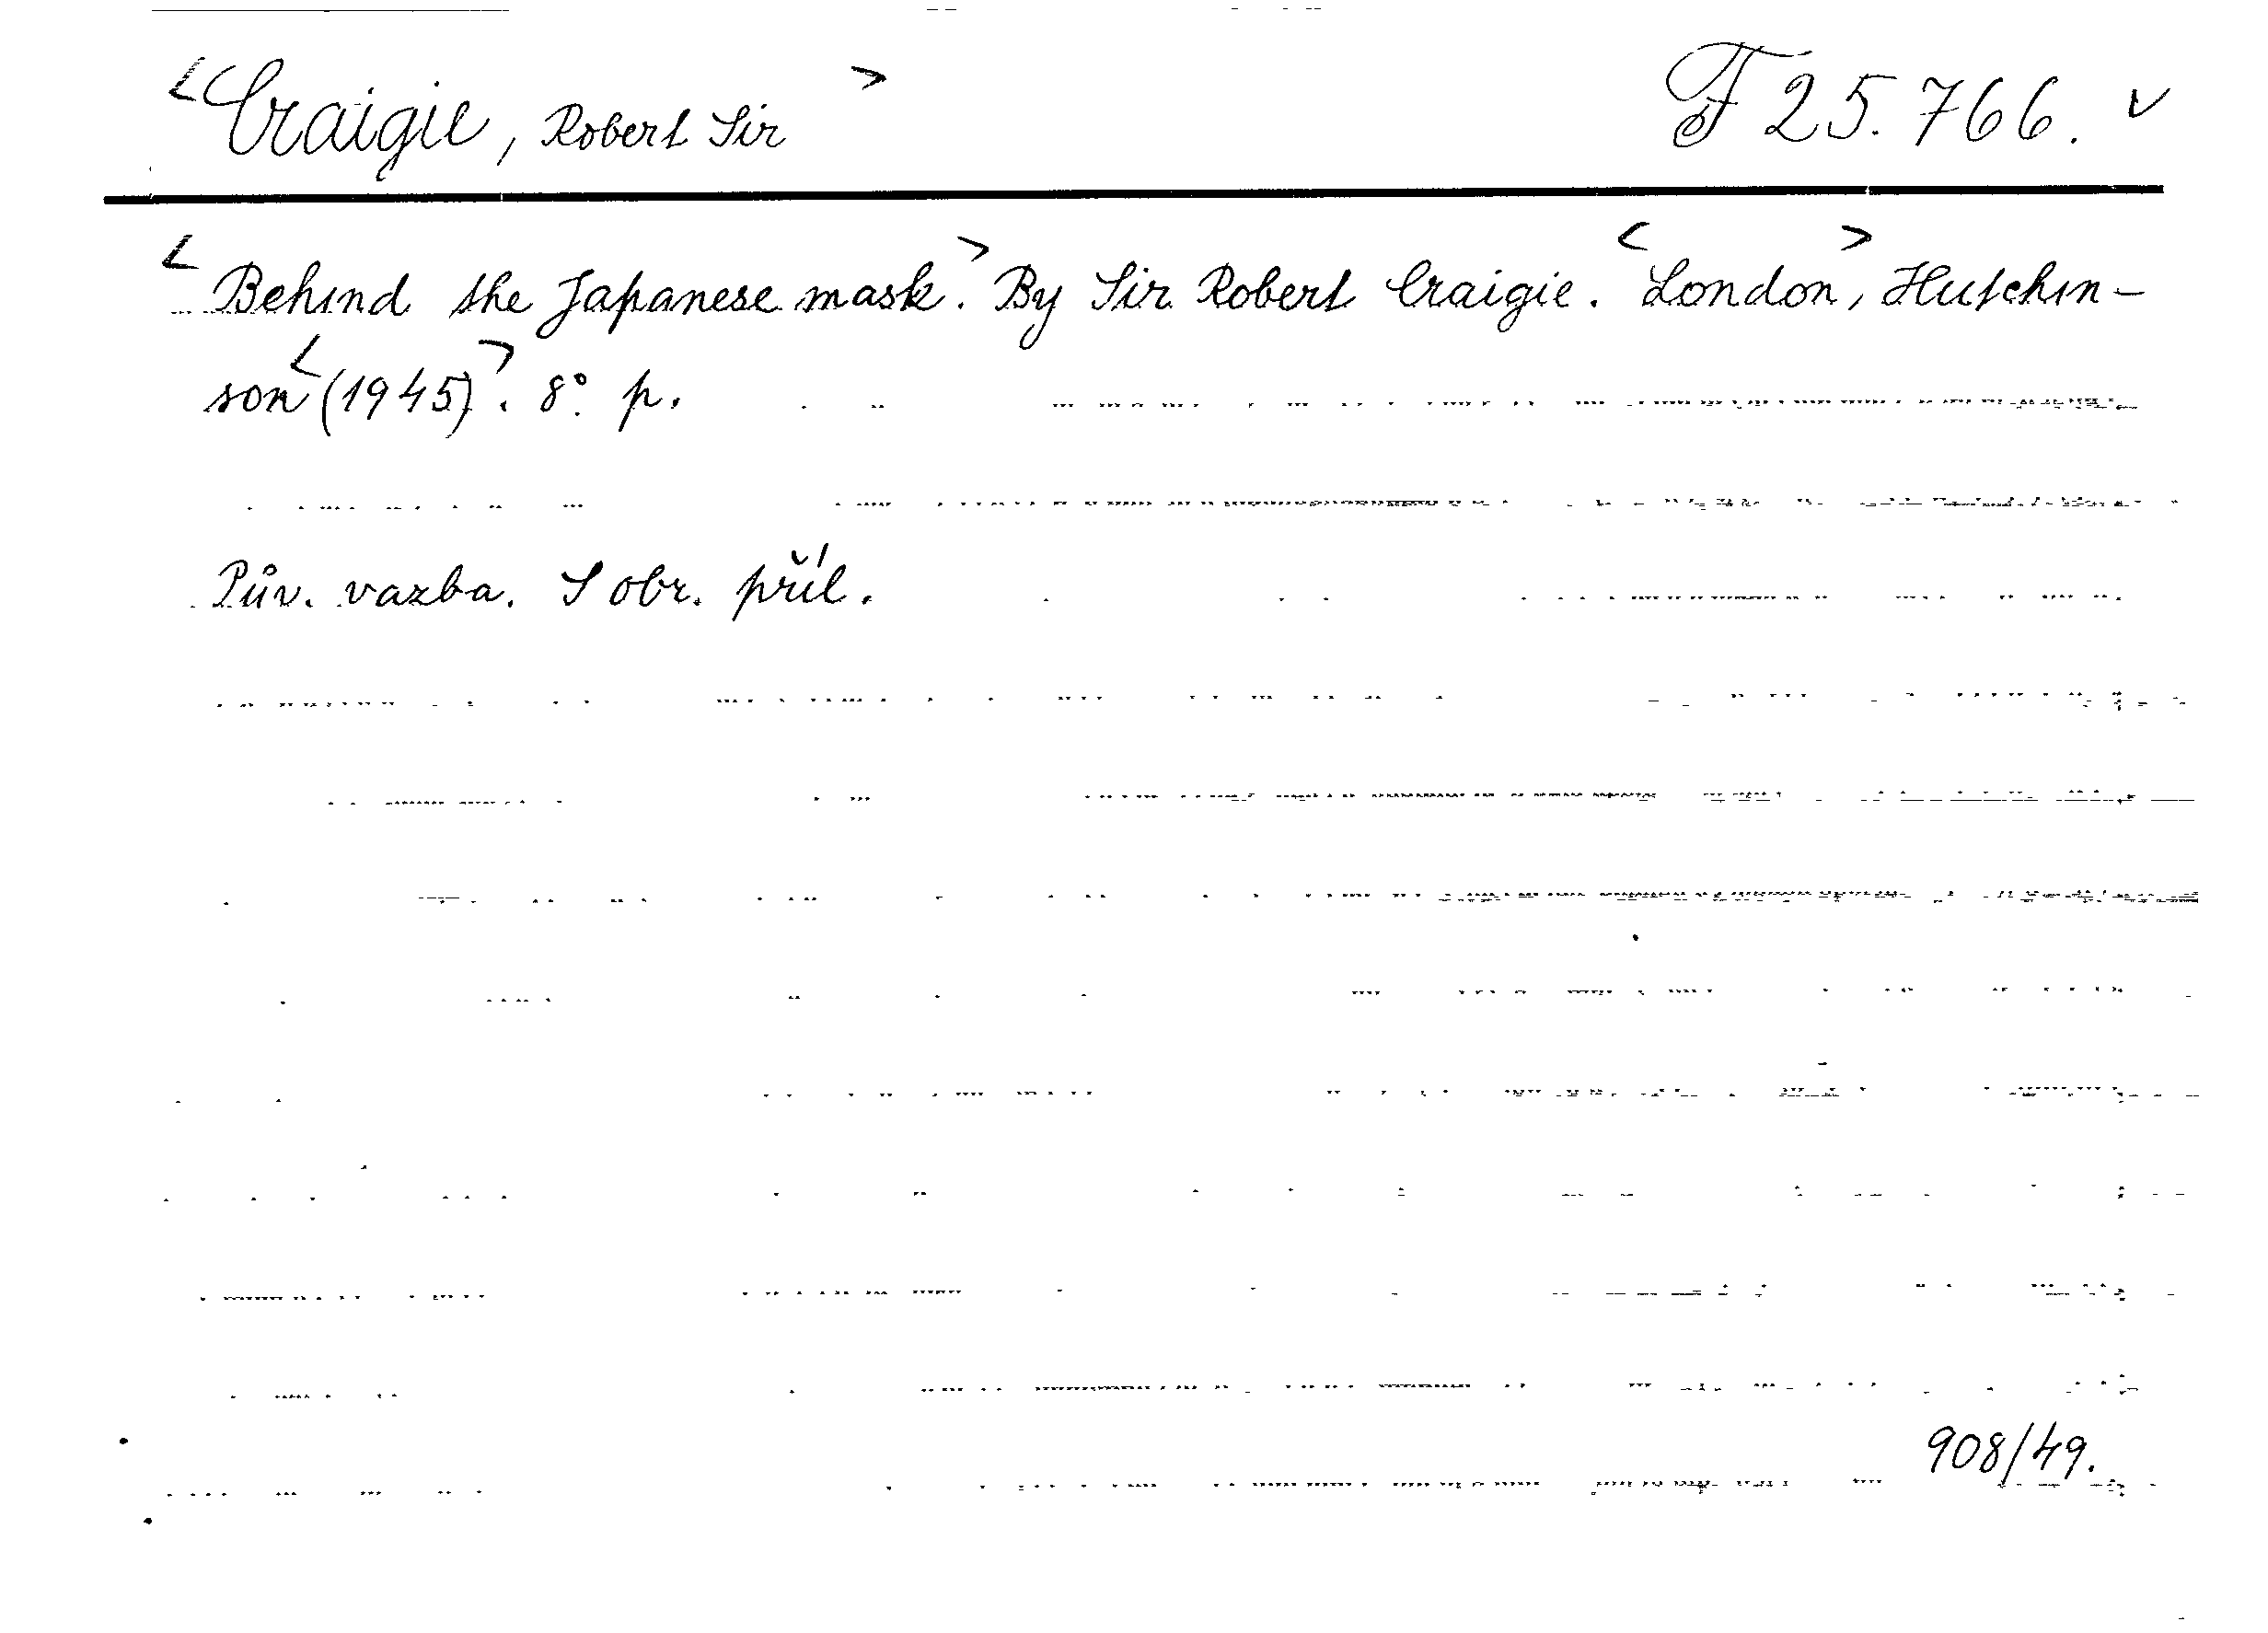 <Craigie, Robert Sir> F 25.766. v
<Behind the Japanese mask.> By Sir Robert Craigie. <London>, Hutchin-
son <(1945)>. 8°. p.
Pův. vazba. S obr. příl.
908/49.